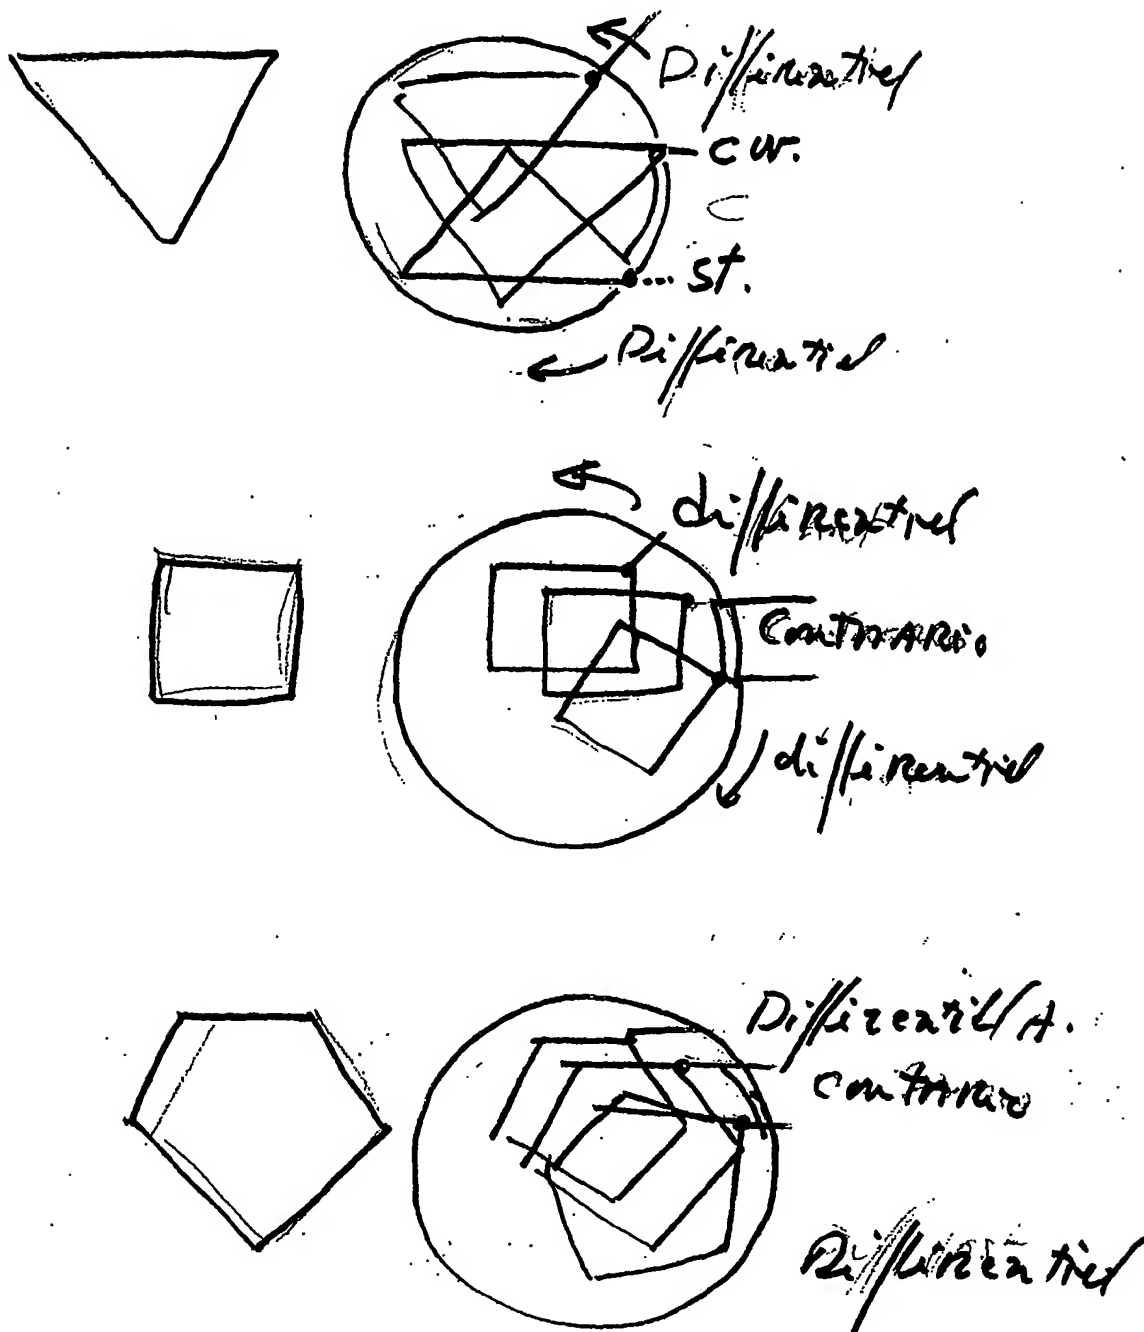 Differentiel
cw.
C
st.
Differentiel
differentiel
Contrario.
differentiel
Differentiel A.
contrario
Differentiel